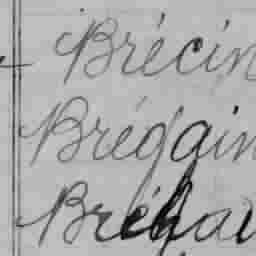 Brécin
Bréggin
Bréhai